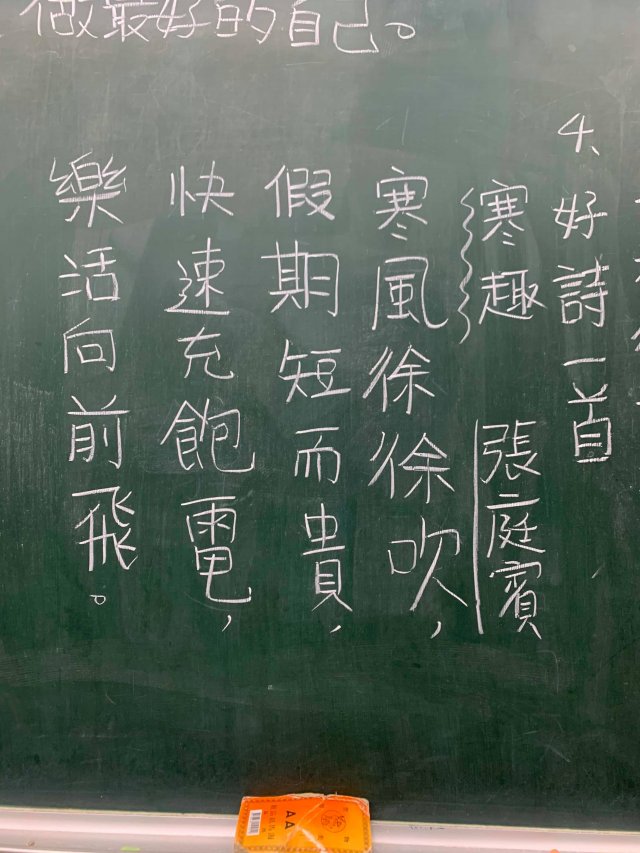 做最好的自己。
4、好詩一首
寒趣 張庭賓
寒風徐徐吹，
假期短而貴，
快速充飽電，
樂活向前飛。
AA